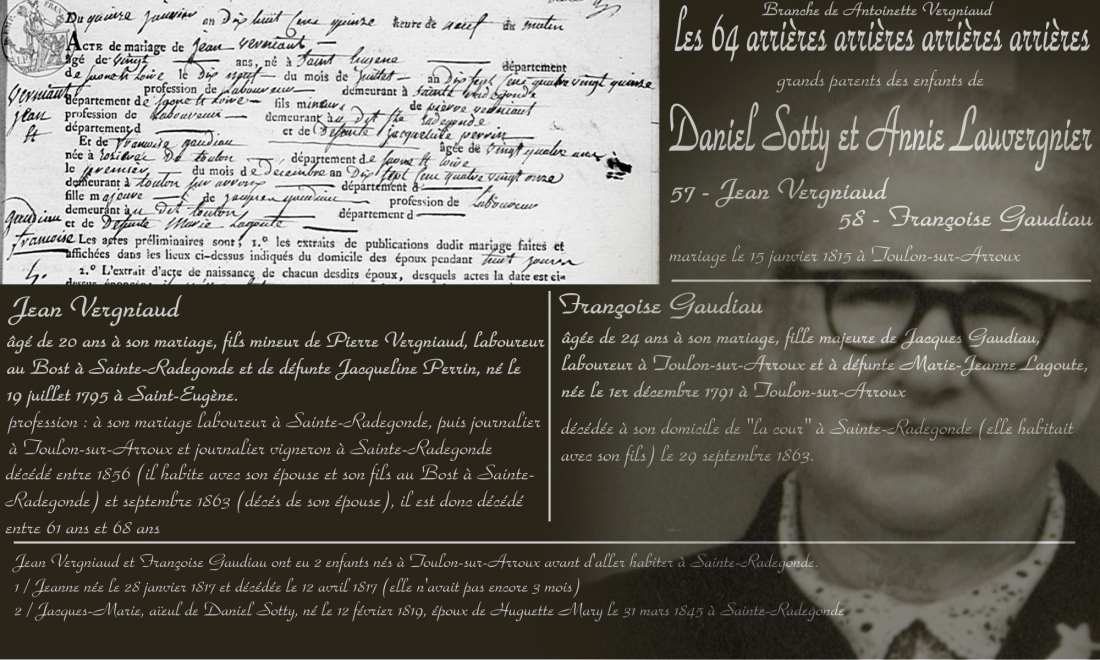 Du quinze janvier an Dix huit Cent quinze heure de neuf du matin
ACTE de mariage de jean verniaut
âgé de vingt ans, né à Saint Eugene département
de saone et Loire le Dix neuf du mois de juillet an Dix sept Cent quatre vingt quinze
profession de Laboureur demeurant à Sainte radegonde
département de saone et Loire fils mineur de pierre verniaut
profession de Laboureur demeurant au dit Ste radegonde
département d et de Defunte jacqueline perrin
verniaut
jean
et
Et de francoise gaudiau âgée de vingt quatre ans
née à toulon département de saone et Loire
le premier du mois de decembre an Dix sept Cent quatre vingt onze
demeurant à toulon sur arroux département d
fille majeure de jacques gaudiau profession de Laboureur
demeurant au dit toulon département d
et de Defunte Marie Lagoute
gaudiau
francoise
Les actes préliminaires sont, 1.º les extraits de publications dudit mariage faites et
affichées dans les lieux ci-dessus indiqués du domicile des époux pendant huit jours
2.º L'extrait d'acte de naissance de chacun desdits époux, desquels actes la date est ci-
Branche de Antoinette Vergniaud
les 64 arrières arrières arrières arrières
grands parents des enfants de
Daniel Sotty et Annie Lauvergnier
57 - Jean Vergniaud
58 - Françoise Gaudiau
mariage le 15 janvier 1815 à Toulon-sur-Arroux
Jean Vergniaud
âgé de 20 ans à son mariage, fils mineur de Pierre Vergniaud, laboureur
au Bost à Sainte-Radegonde et de défunte Jacqueline Perrin, né le
19 juillet 1795 à Saint-Eugène.
profession : à son mariage laboureur à Sainte-Radegonde, puis journalier
à Toulon-sur-Arroux et journalier vigneron à Sainte-Radegonde
décédé entre 1856 (il habite avec son épouse et son fils au Bost à Sainte-
Radegonde) et septembre 1863 (décés de son épouse), il est donc décédé
entre 61 ans et 68 ans
Françoise Gaudiau
âgée de 24 ans à son mariage, fille majeure de Jacques Gaudiau,
laboureur à Toulon-sur-Arroux et à défunte Marie-Jeanne Lagoute,
née le 1er décembre 1791 à Toulon-sur-Arroux
décédée à son domicile de "la cour" à Sainte-Radegonde (elle habitait
avec son fils) le 29 septembre 1863.
Jean Vergniaud et Françoise Gaudiau ont eu 2 enfants nés à Toulon-sur-Arroux avant d'aller habiter à Sainte-Radegonde.
1 / Jeanne née le 28 janvier 1817 et décédée le 12 avril 1817 (elle n'avait pas encore 3 mois)
2 / Jacques-Marie, aïeul de Daniel Sotty, né le 12 février 1819, époux de Huguette Mary le 31 mars 1845 à Sainte-Radegonde